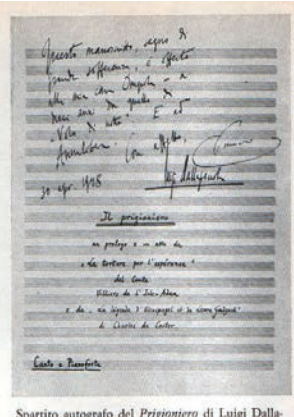 Questo manoscritto, segno di
grande sofferenza, è offerto
alla mia cara
anni da quello di
"Volo di notte". E ad
Con affetto,
30 apr. 1948
Il prigioniero
un prologo e un atto da
« La torture par l'espérance »
del Conte
Villiers de l'Isle-Adam
e da « La légende d'Ulenspiegel et de Lamme Goedzak »
di Charles de Coster
Canto e Pianoforte
Spartito autografo del Prigioniero di Luigi Dalla-